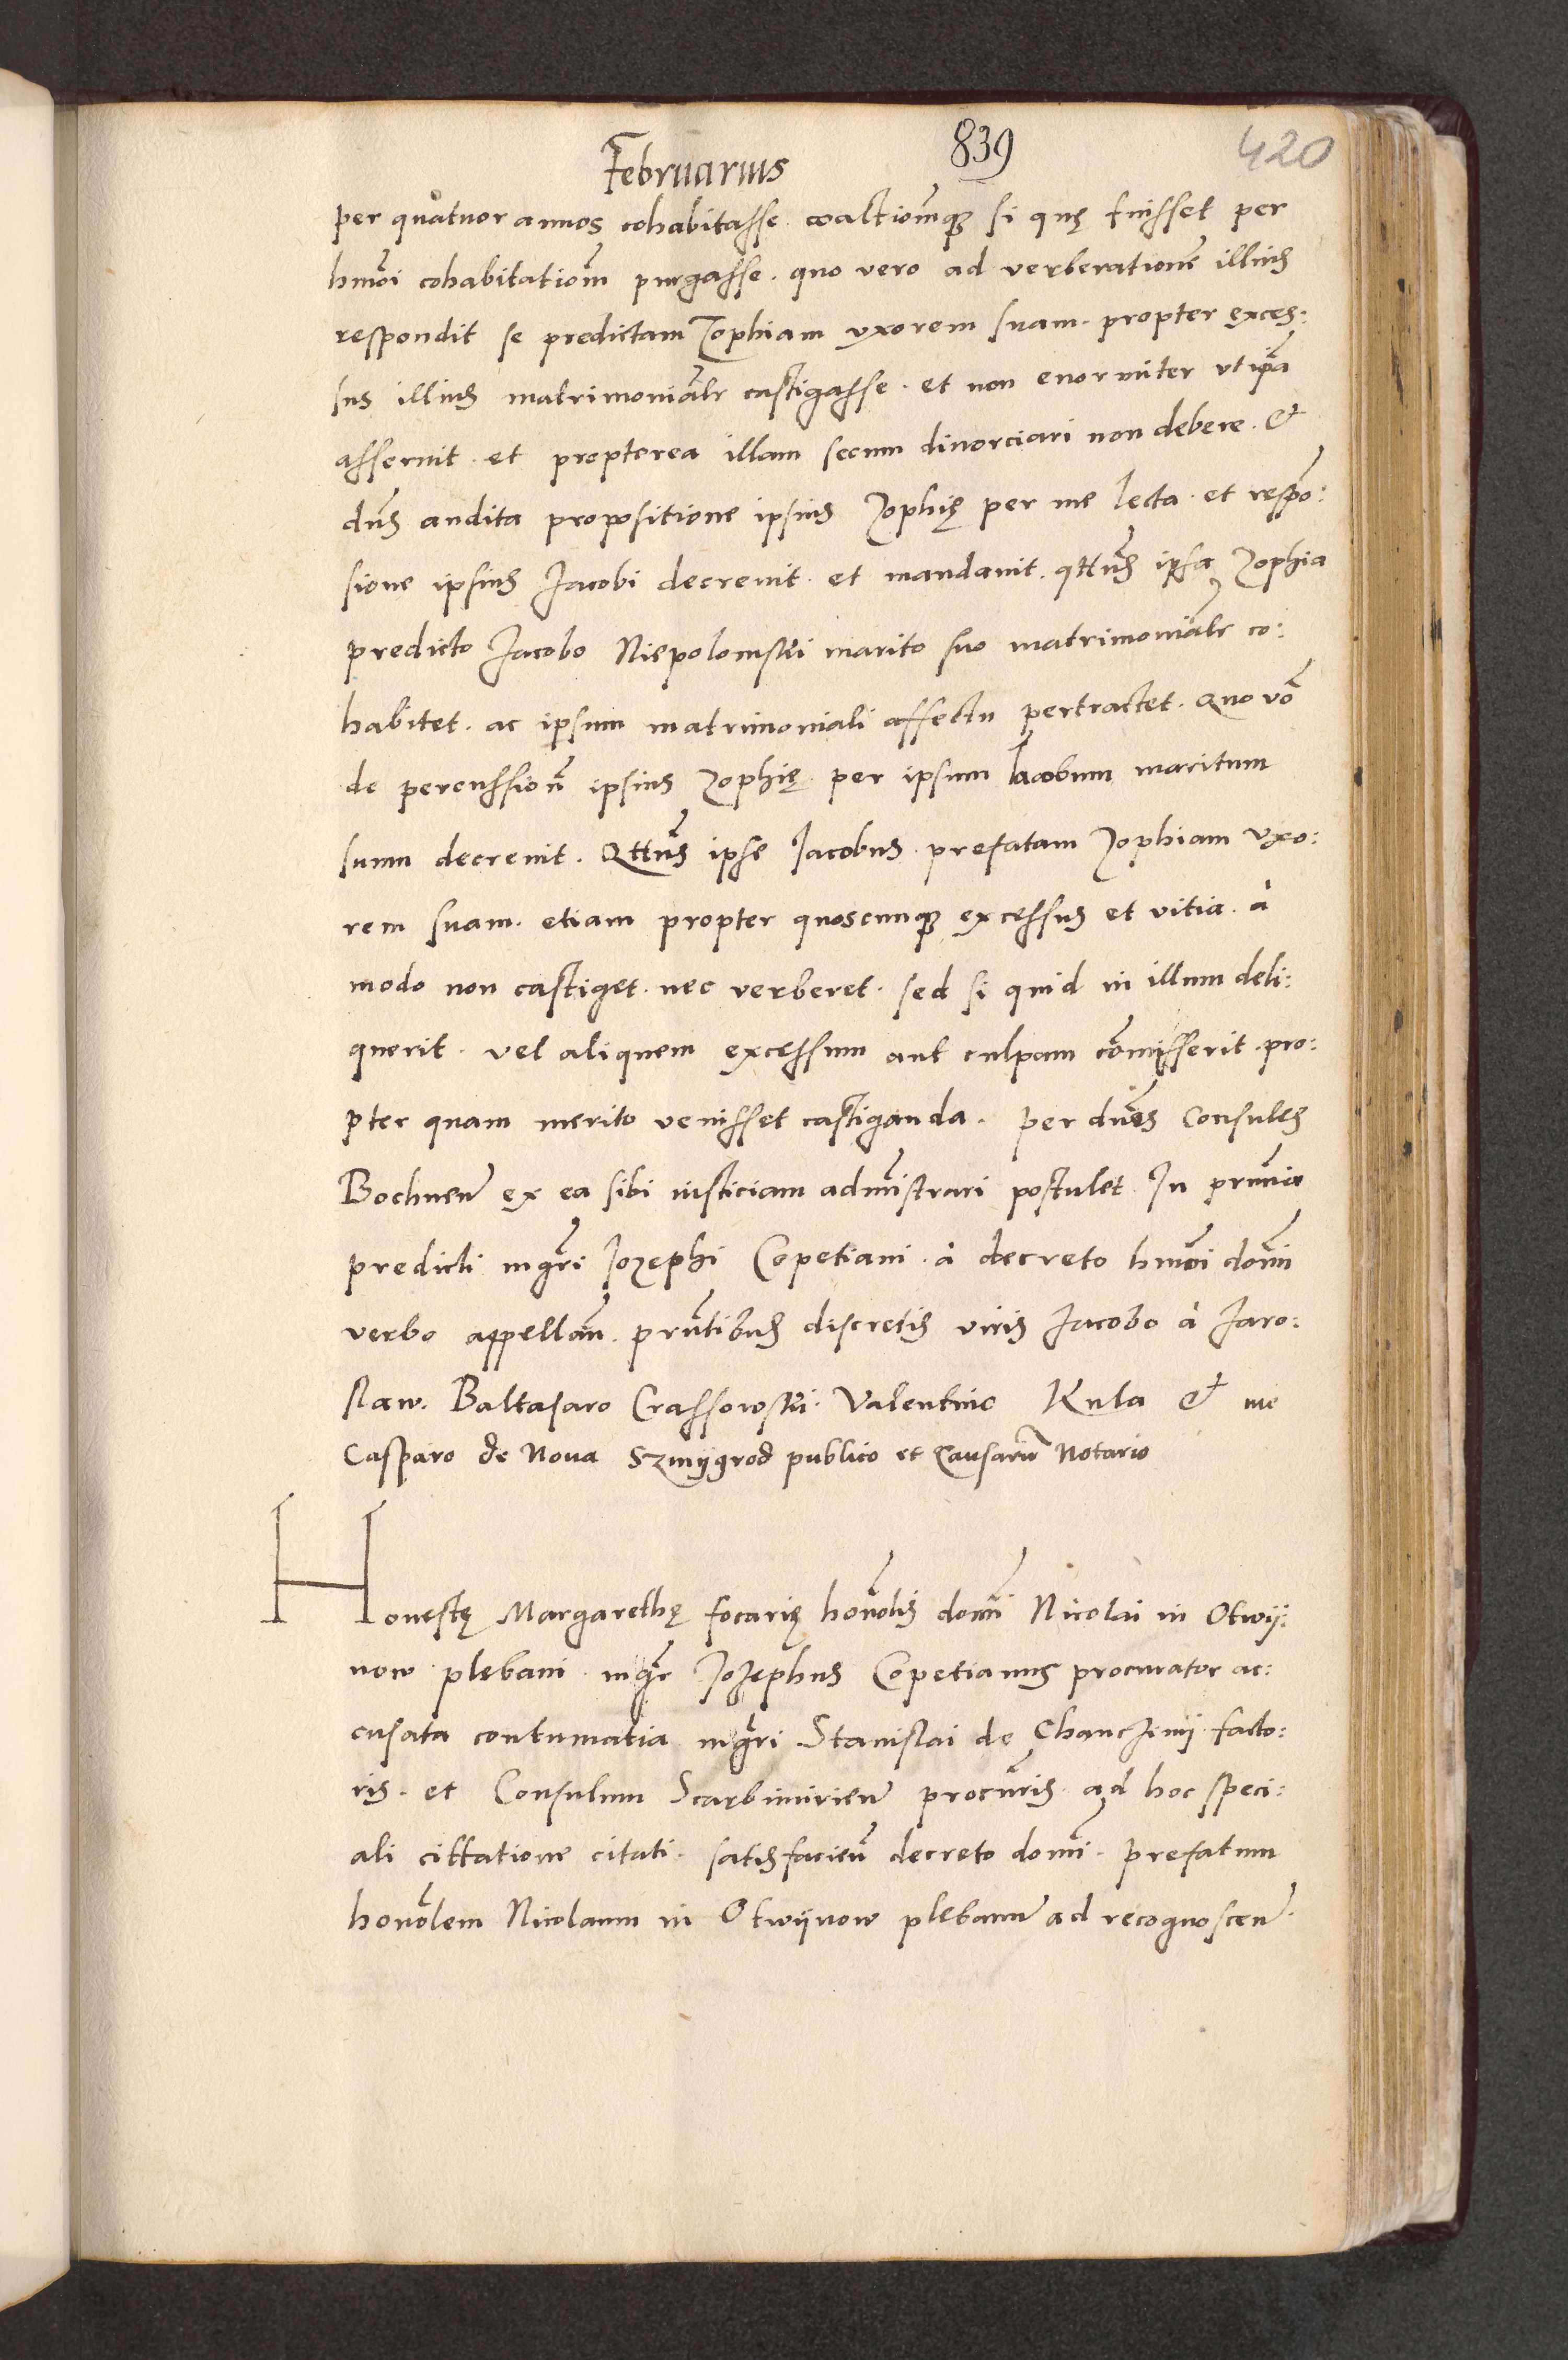 Februarius 839 420
per quatuor annos cohabitasse. coactiomq3 si quę fuisset per
hmoi cohabitatiom purgasse. quo vero ad verberatione illius
respondit se predictam Zophiam uxorem suam. propter exces:
sus illius matrimonialr castigasse. et non enormiter ut ipa
asseruit. et propterea illam secum divorciari non debere. &
dns audita propositione ipsius Zophię per me lecta. et respo:
sione ipsius Jacobi decrevit. et mandavit. qttus ipsa Zophia
predicto Jacobo Niepolomski marito suo matrimonialr co:
habitet. ac ipsum matrimoniali affectu pertractet. Quo vo
de percussion ipsius Zophię per ipsum Iacobum maritum
suum decrevit. Qttus ipse Jacobus. prefatam Zophiam uxo:
rem suam. etiam propter quoscunq3 excessus et vitia. à
modo non castiget. nec verberet. sed si quid in illum deli:
querit. vel aliquem excessum aut culpam comisserit. pro:
pter quam merito venisset castiganda. per dnos Consules
Bochnen ex ea sibi iusticiam admistrari postulet. In prntia
predicti mgri Jozephi Copetiani. à decreto hmoi domi
verbo appellan. prntibus discretis viris Jacobo à Jaro:
slaw. Baltasaro Crassowski. Valentino Kula & me
Casparo de Nova Szmÿgrod publico et Causaru Notario
Honestę Margarethę focarię honolis domi Nicolai in Otwÿ:
now plebani. mgr Jozephus Copetianus procurator ac:
cusata contumatia mgri Stanislai de Chanczinÿ. facto:
ris. et Consulum Scarbimirien procuris ad hoc speci:
ali cittatione citati. satisfacien decreto domi. prefatum
honolem Nicolaum in Otwÿnow plebanu ad recognoscen.